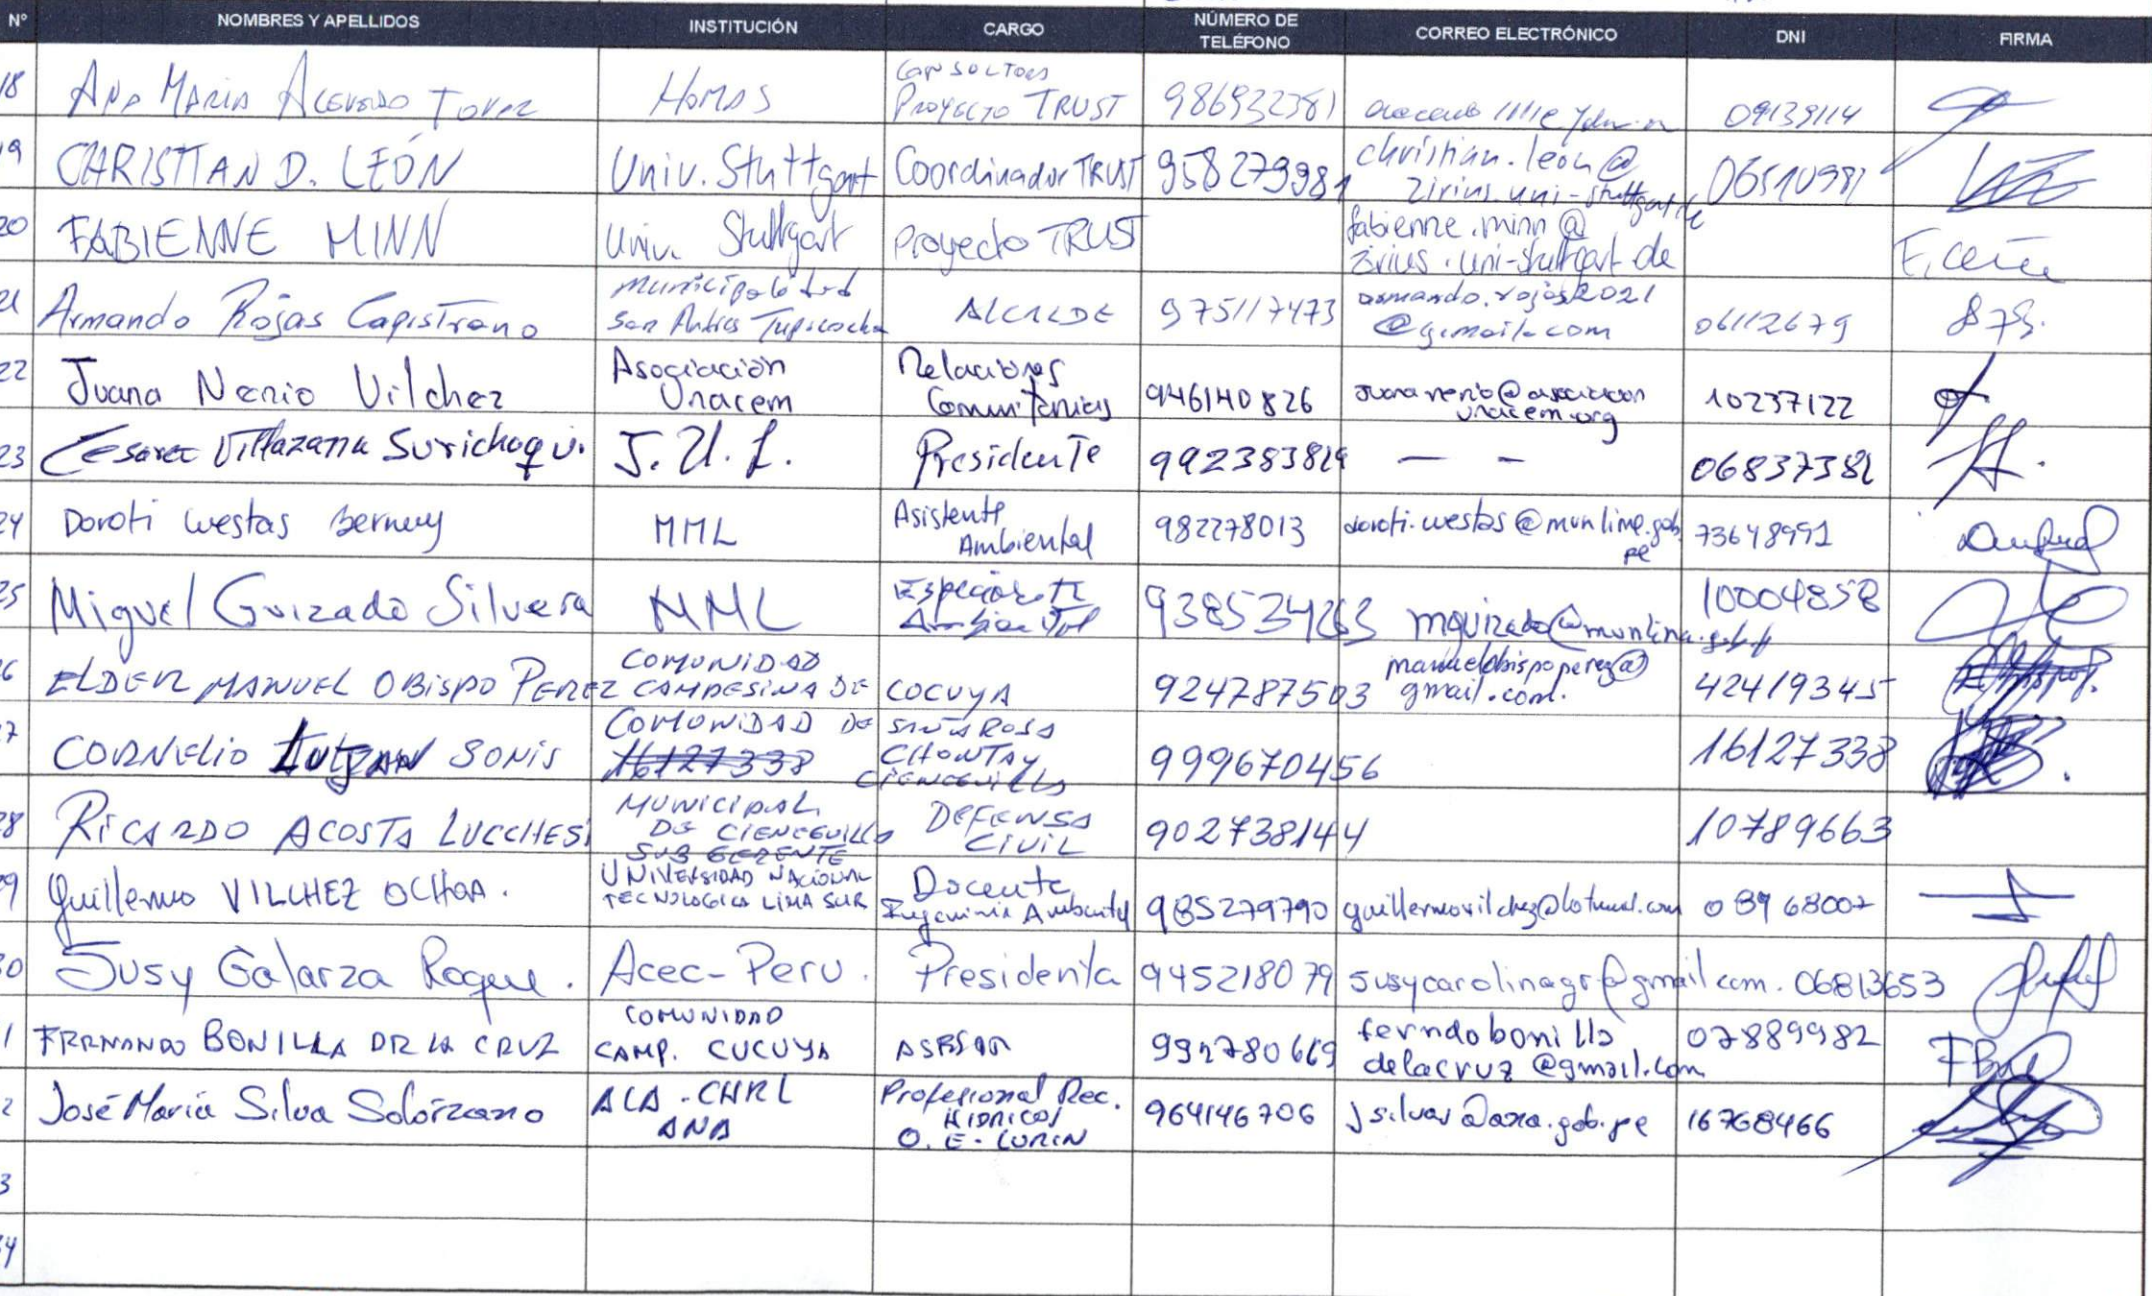 N° NOMBRES Y APELLIDOS INSTITUCIÓN CARGO NÚMERO DE TELÉFONO CORREO ELECTRÓNICO DNI FIRMA
18 Ana María Acevedo Tovar HOMAS Proyecto TRUST 986932381 09139114
19 CHRISTIAN D. LEÓN Univ. Stuttgart Coordinador TRUST 958279981 christian.leon@
zirius.uni-stuttgart.de 06510981
20 FABIENNE MINN Univ. Stuttgart Proyecto TRUST fabienne.minn@
zirius.uni-stuttgart.de
21 Armando Rojas Capistrano Municipalidad
San Andres Tupicocha ALCALDE 975117473 armando.rojas2021
@gmail.com 06112679
22 Juana Nerio Vilchez Asociación
Unacem Relaciones
Comunitarias 946140826 juananerio@asociacion
unacem.org 10237122
23 Villazana Surichaqui. J.U.L. Presidente — — 06837382
24 Doroti Westas Bernuy MML Asistente
Ambiental 982278013 doroti.westas@munlima.gob.
pe 73648991
25 Miguel Guizado Silvera MML Especialista
Ambiental 938534263 mguizado@munlima.gob.p 10004858
6 ELDER MANUEL OBISPO PEREZ COMUNIDAD
CAMPESINA DE COCUYA 924787503 manuelobispoperez@
gmail.com. 42419345
7 CORNELIO SONIS COMUNIDAD DE SANTA ROSA
16127338 CHONTAY
CIENEGUILLA 999670456 16127338
28 RICARDO ACOSTA LUCCHESI MUNICIPAL
DE CIENEGUILLA
SUB GERENTE DEFENSA
CIVIL 902738144 10789663
29 Guillermo VILCHEZ OCHOA. UNIVERSIDAD NACIONAL
TECNOLOGICA LIMA SUR Docente
Ingeniería Ambiental 985279790 guillermovilchez@hotmail.com 08968007
30 Susy Galarza Roque. Acec-Peru. Presidenta 945218079 susycarolinagr@gmail.com. 06813653
1 FERNANDO BONILLA DE LA CRUZ COMUNIDAD
CAMP. CUCUYA ASESOR 992780669 ferndobonilla
delacruz@gmail.com 07889982
2 José María Silva Solórzano ALA - CHRL
ANA Profesional Rec.
HIDRICOS
O. E - LURIN 964146706 jsilvas@ana.gob.pe 16768466
3
34